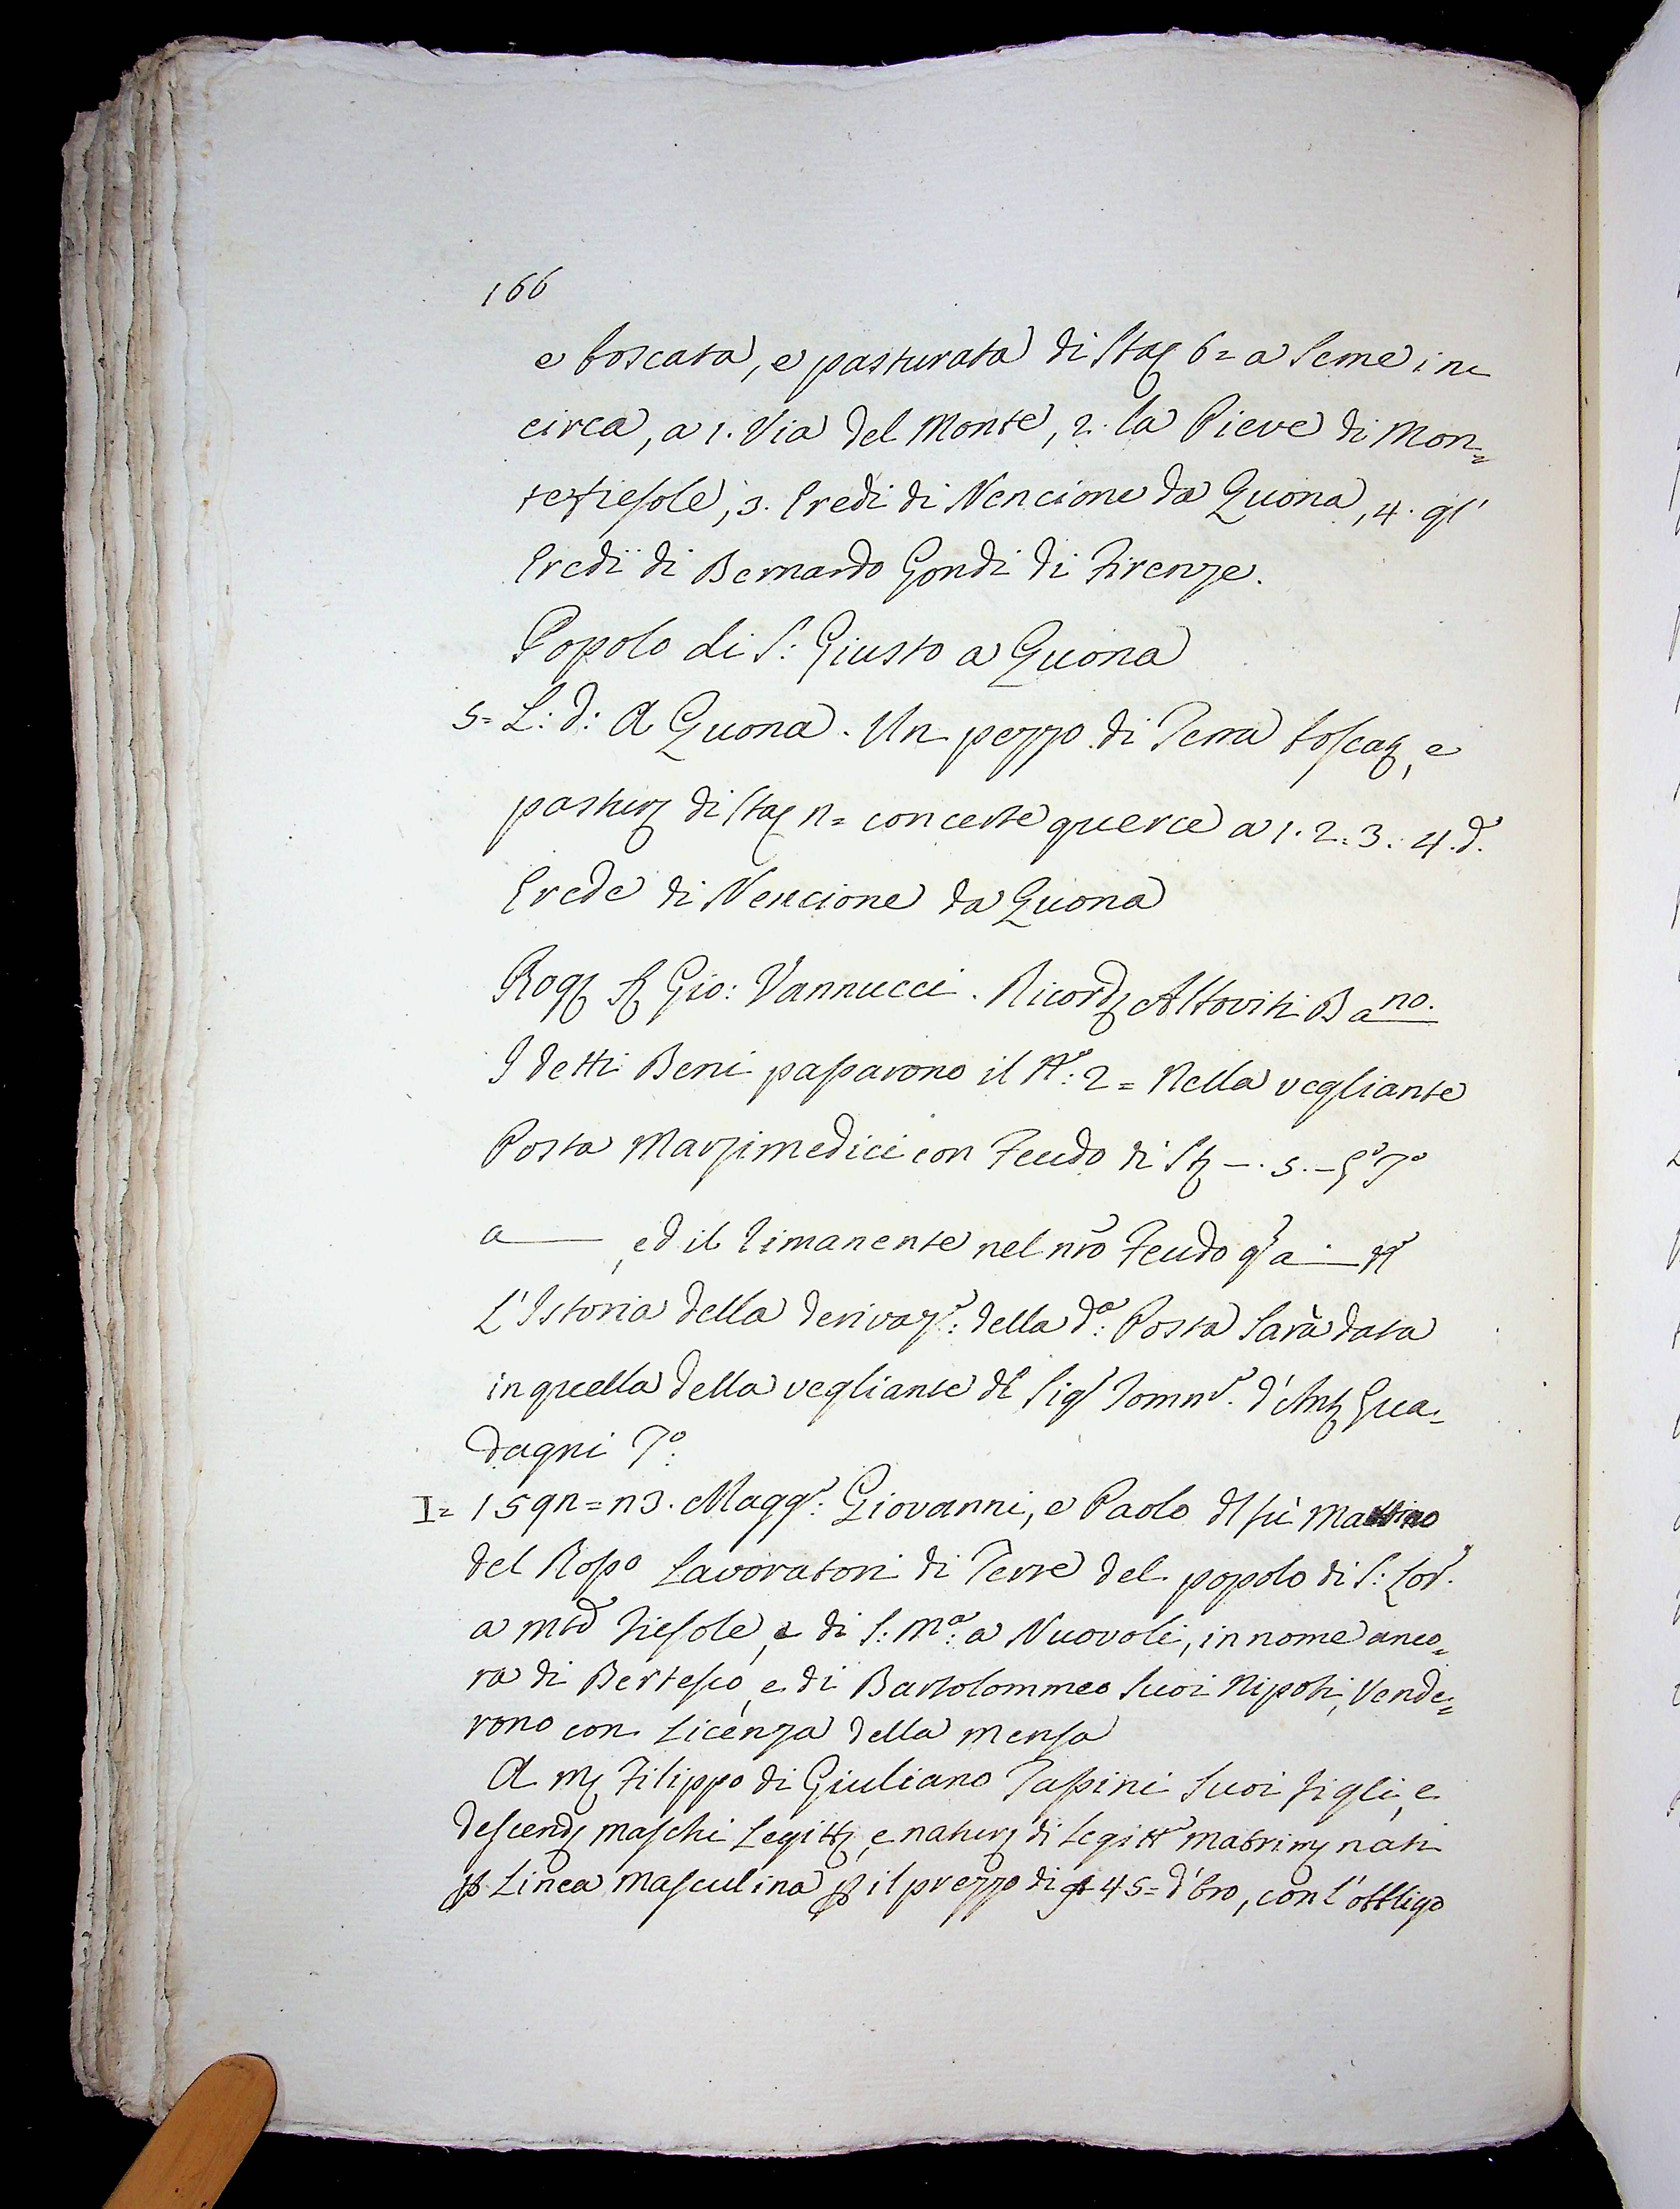 166
e boscata, e pasturata di Sta 6= a Seme in
circa, a 1. Via del Monte, 2. la Pieve di Mon=
tefiesole, 3. Eredi di Nencione da Quona, 4. gl'
Eredi di Bernardo Gondi di Firenze.
Popolo di S: Giusto a Quona
5= L: d: A Quona. Un pezzo di Terra bosca, e
pastur di Sta n= con certe querce a 1. 2. 3. 4. d.
Erede di Nencione da Quona
Rog S Gio: Vannucci. Ricord Altoviti Bano.
I detti Beni passarono il N: 2= Nella vegliante
Posta Marzimedici con Feudo di St —. 5. —
a —, ed il rimanente nel nro Feudo q a —
L'Istoria della derivaz: della da: Posta sarà data
in quella della vegliante dl Sigr Tommo. d'Ant Gua=
dagni
I= 159n= n3. Magg: Giovanni, e Paolo dl fù Martino
del Rosso Lavoratori di Terre del popolo di S: Lor.
a Mte Fiesole, e di S: Ma: a Nuovoli, in nome anco=
ra di Bertesco, e di Bartolommeo suoi Nipoti, Vende=
rono con Licenza della Mensa
A M Filippo di Giuliano Tassini suoi figli, e
descend maschi Legitt, e natur di Legitt Matrim nati
p Linea Masculina p il prezzo di 45= d'Oro, con l'obbligo